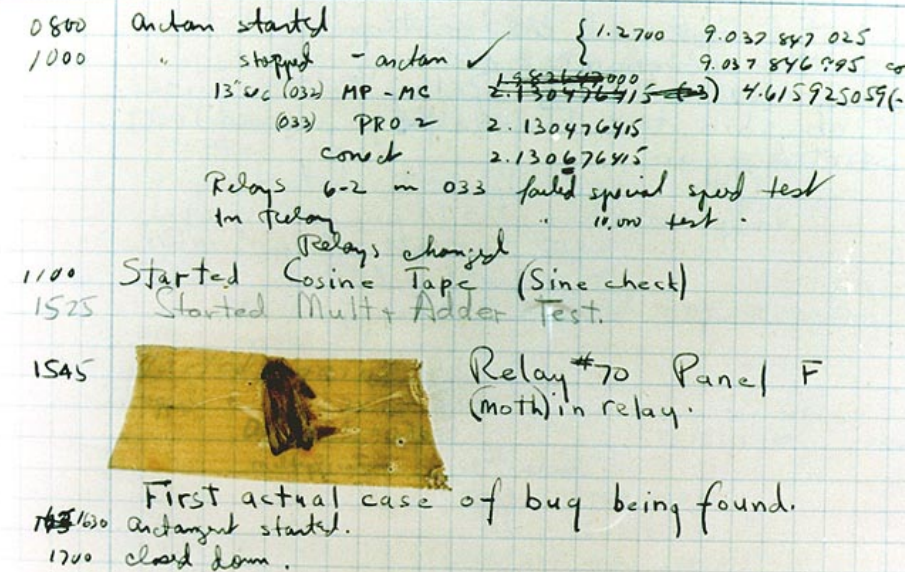 0800 arctan started { 1.2700 9.037 847 025
1000 " stopped - arctan ✓ 9.037 846 995 co
13" uc (032) MP - MC 1.982647000
2.130476415 (-3) 4.615925059(-
(033) PRO 2 2.130476415
correct 2.130676415
Relays 6-2 in 033 failed special speed test
In Relay " 10,000 test .
Relays changed
1100 Started Cosine Tape (Sine check)
1525 Started Mult + Adder Test.
1545 Relay #70 Panel F
(moth) in relay.
First actual case of bug being found.
1630 arctangent started.
1700 closed down.